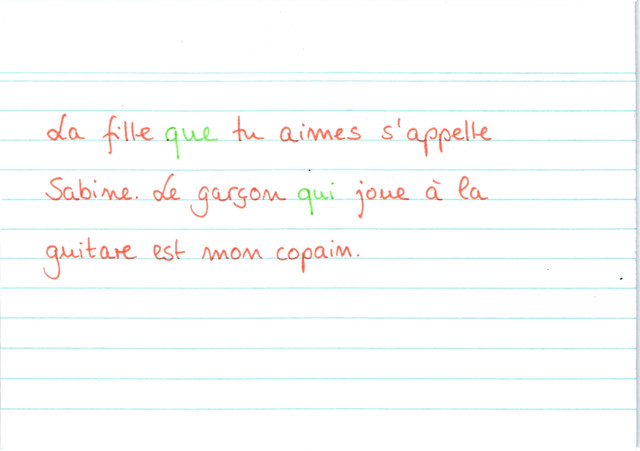 La fille que tu aimes s'appelle
Sabine. Le garçon qui joue à la
guitare est mon copain.